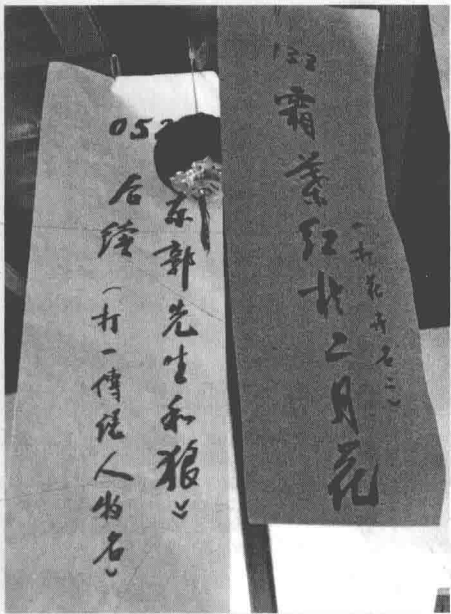 132
霜葉红於二月花
(打花卉名二)
052
东郭先生和狼》
后续(打一傳说人物名)